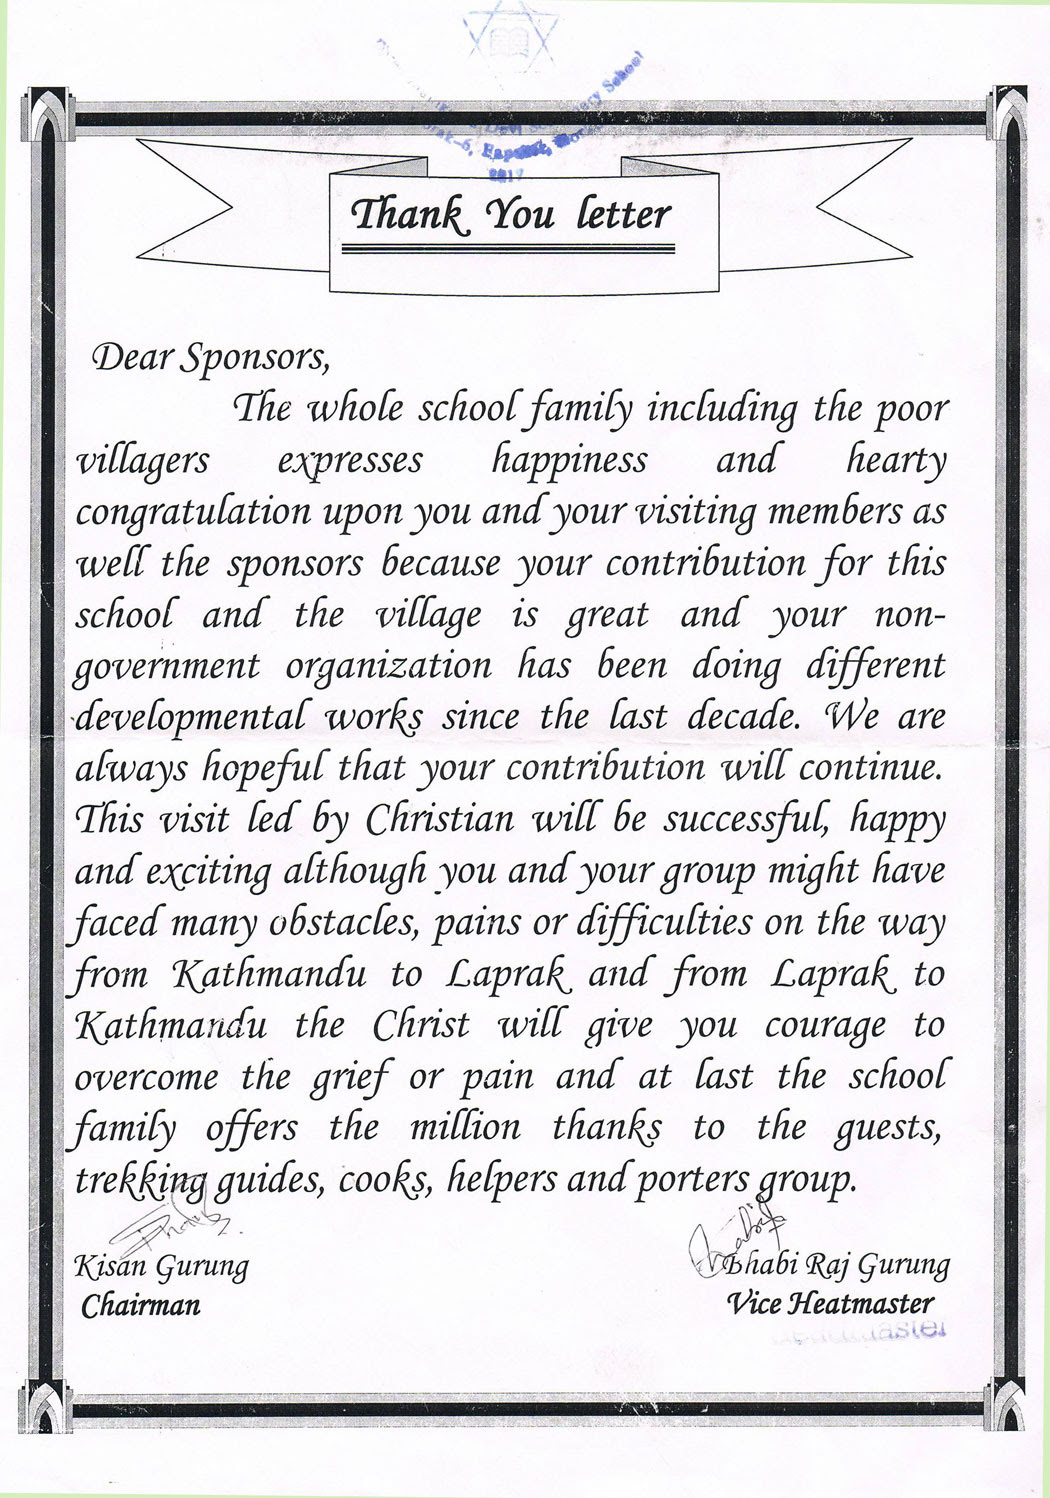 School
Thank You letter
Dear Sponsors,
The whole school family including the poor
villagers expresses happiness and hearty
congratulation upon you and your visiting members as
well the sponsors because your contribution for this
school and the village is great and your non-
government organization has been doing different
developmental works since the last decade. We are
always hopeful that your contribution will continue.
This visit led by Christian will be successful, happy
and exciting although you and your group might have
faced many obstacles, pains or difficulties on the way
from Kathmandu to Laprak and from Laprak to
Kathmandu the Christ will give you courage to
overcome the grief or pain and at last the school
family offers the million thanks to the guests,
trekking guides, cooks, helpers and porters group.
Kisan Gurung
Chairman
Bhabi Raj Gurung
Vice Heatmaster